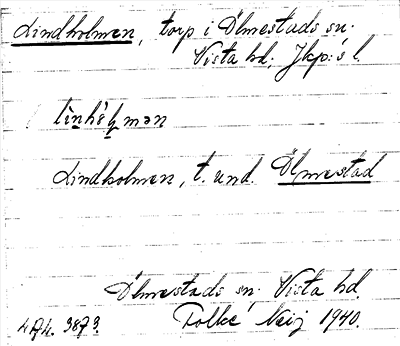 Lindholmen, torp i Ölmestads sn.
Vista hd. Jkp:s l.
Lindholmen, t. und. Ölmestad
Ölmestads sn, Vista hd.
Folke Neij 1940.